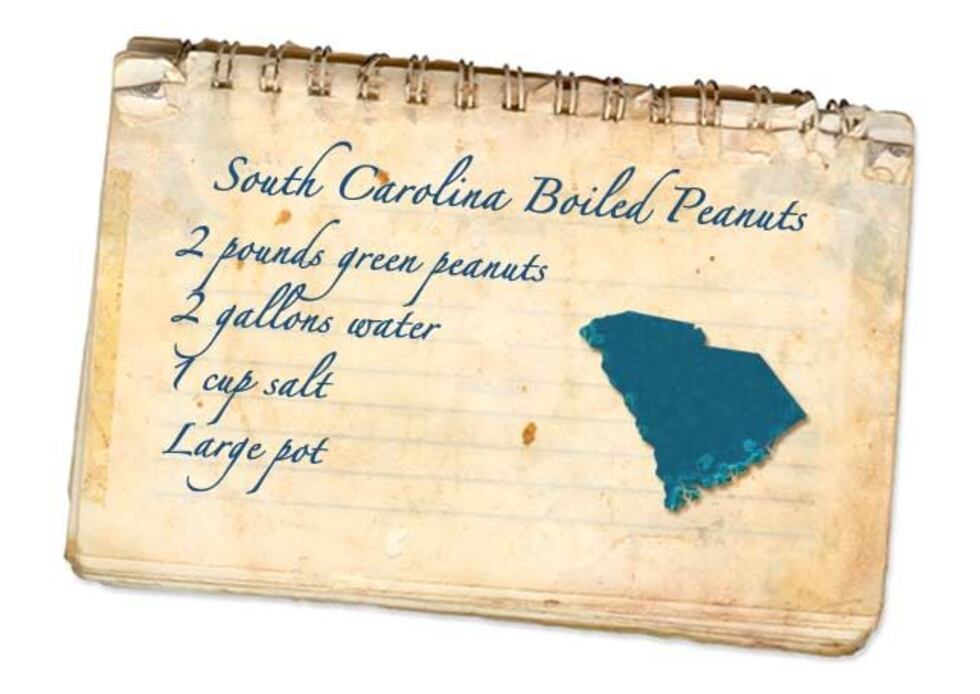 South Carolina Boiled Peanuts
2 pounds green peanuts
2 gallons water
1 cup salt
Large pot